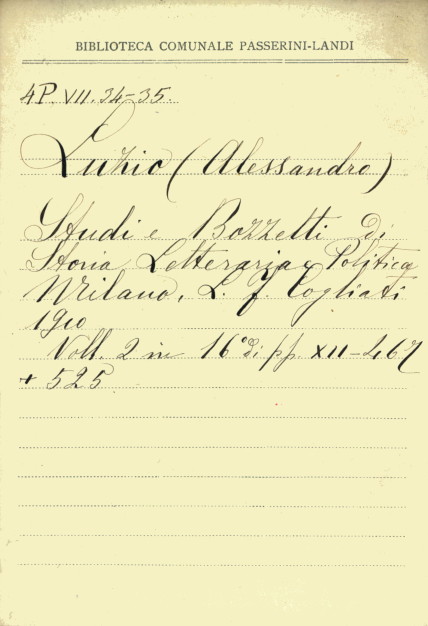 BIBLIOTECA COMUNALE PASSERINI-LANDI
4P. VII. 34-35.
Luzio (Alessandro)
Studi e Bozzetti di
Storia Letteraria e Politica
Milano, L. F. Cogliati
1910
Voll. 2 in 16° di pp. XII-467
+ 525